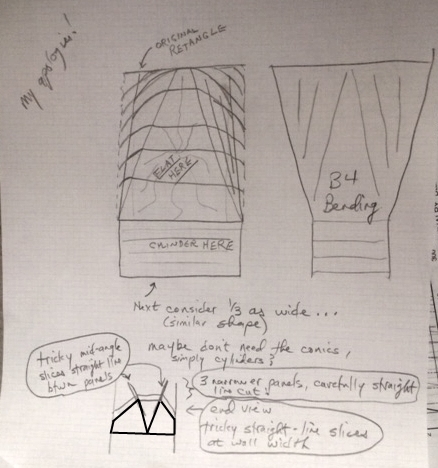 My apologies!
ORIGINAL
RETANGLE
FLAT
HERE
CYLINDER HERE
B4
Bending
Next consider 1/3 as wide...
(similar shape)
maybe don't need the conics,
simply cylinders?
tricky mid-angle
slices straight line
btwn panels
3 narrower panels, carefully straight
line cut!
end view
tricky straight-line slices
at wall width